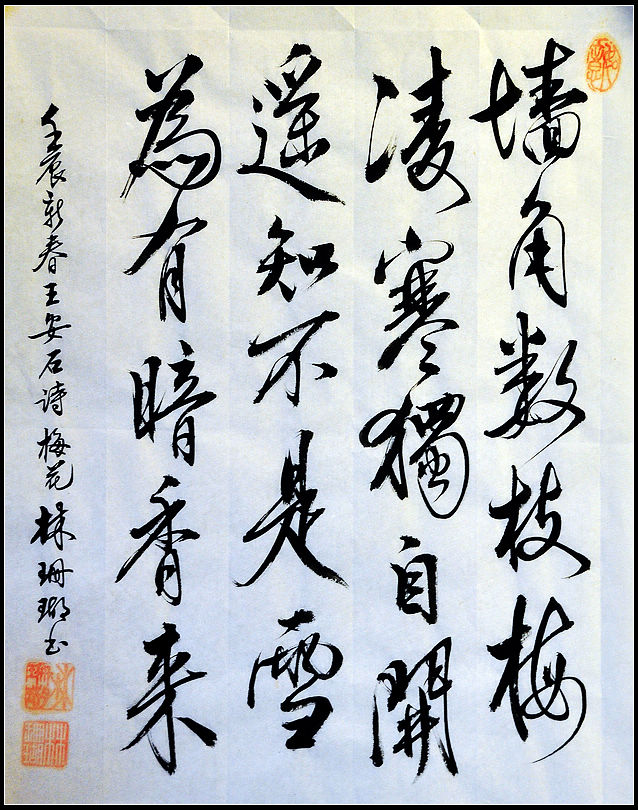 墙角数枝梅
凌寒獨自開
遥知不是雪
為有暗香来
壬辰新春王安石诗梅花林珊瑚书